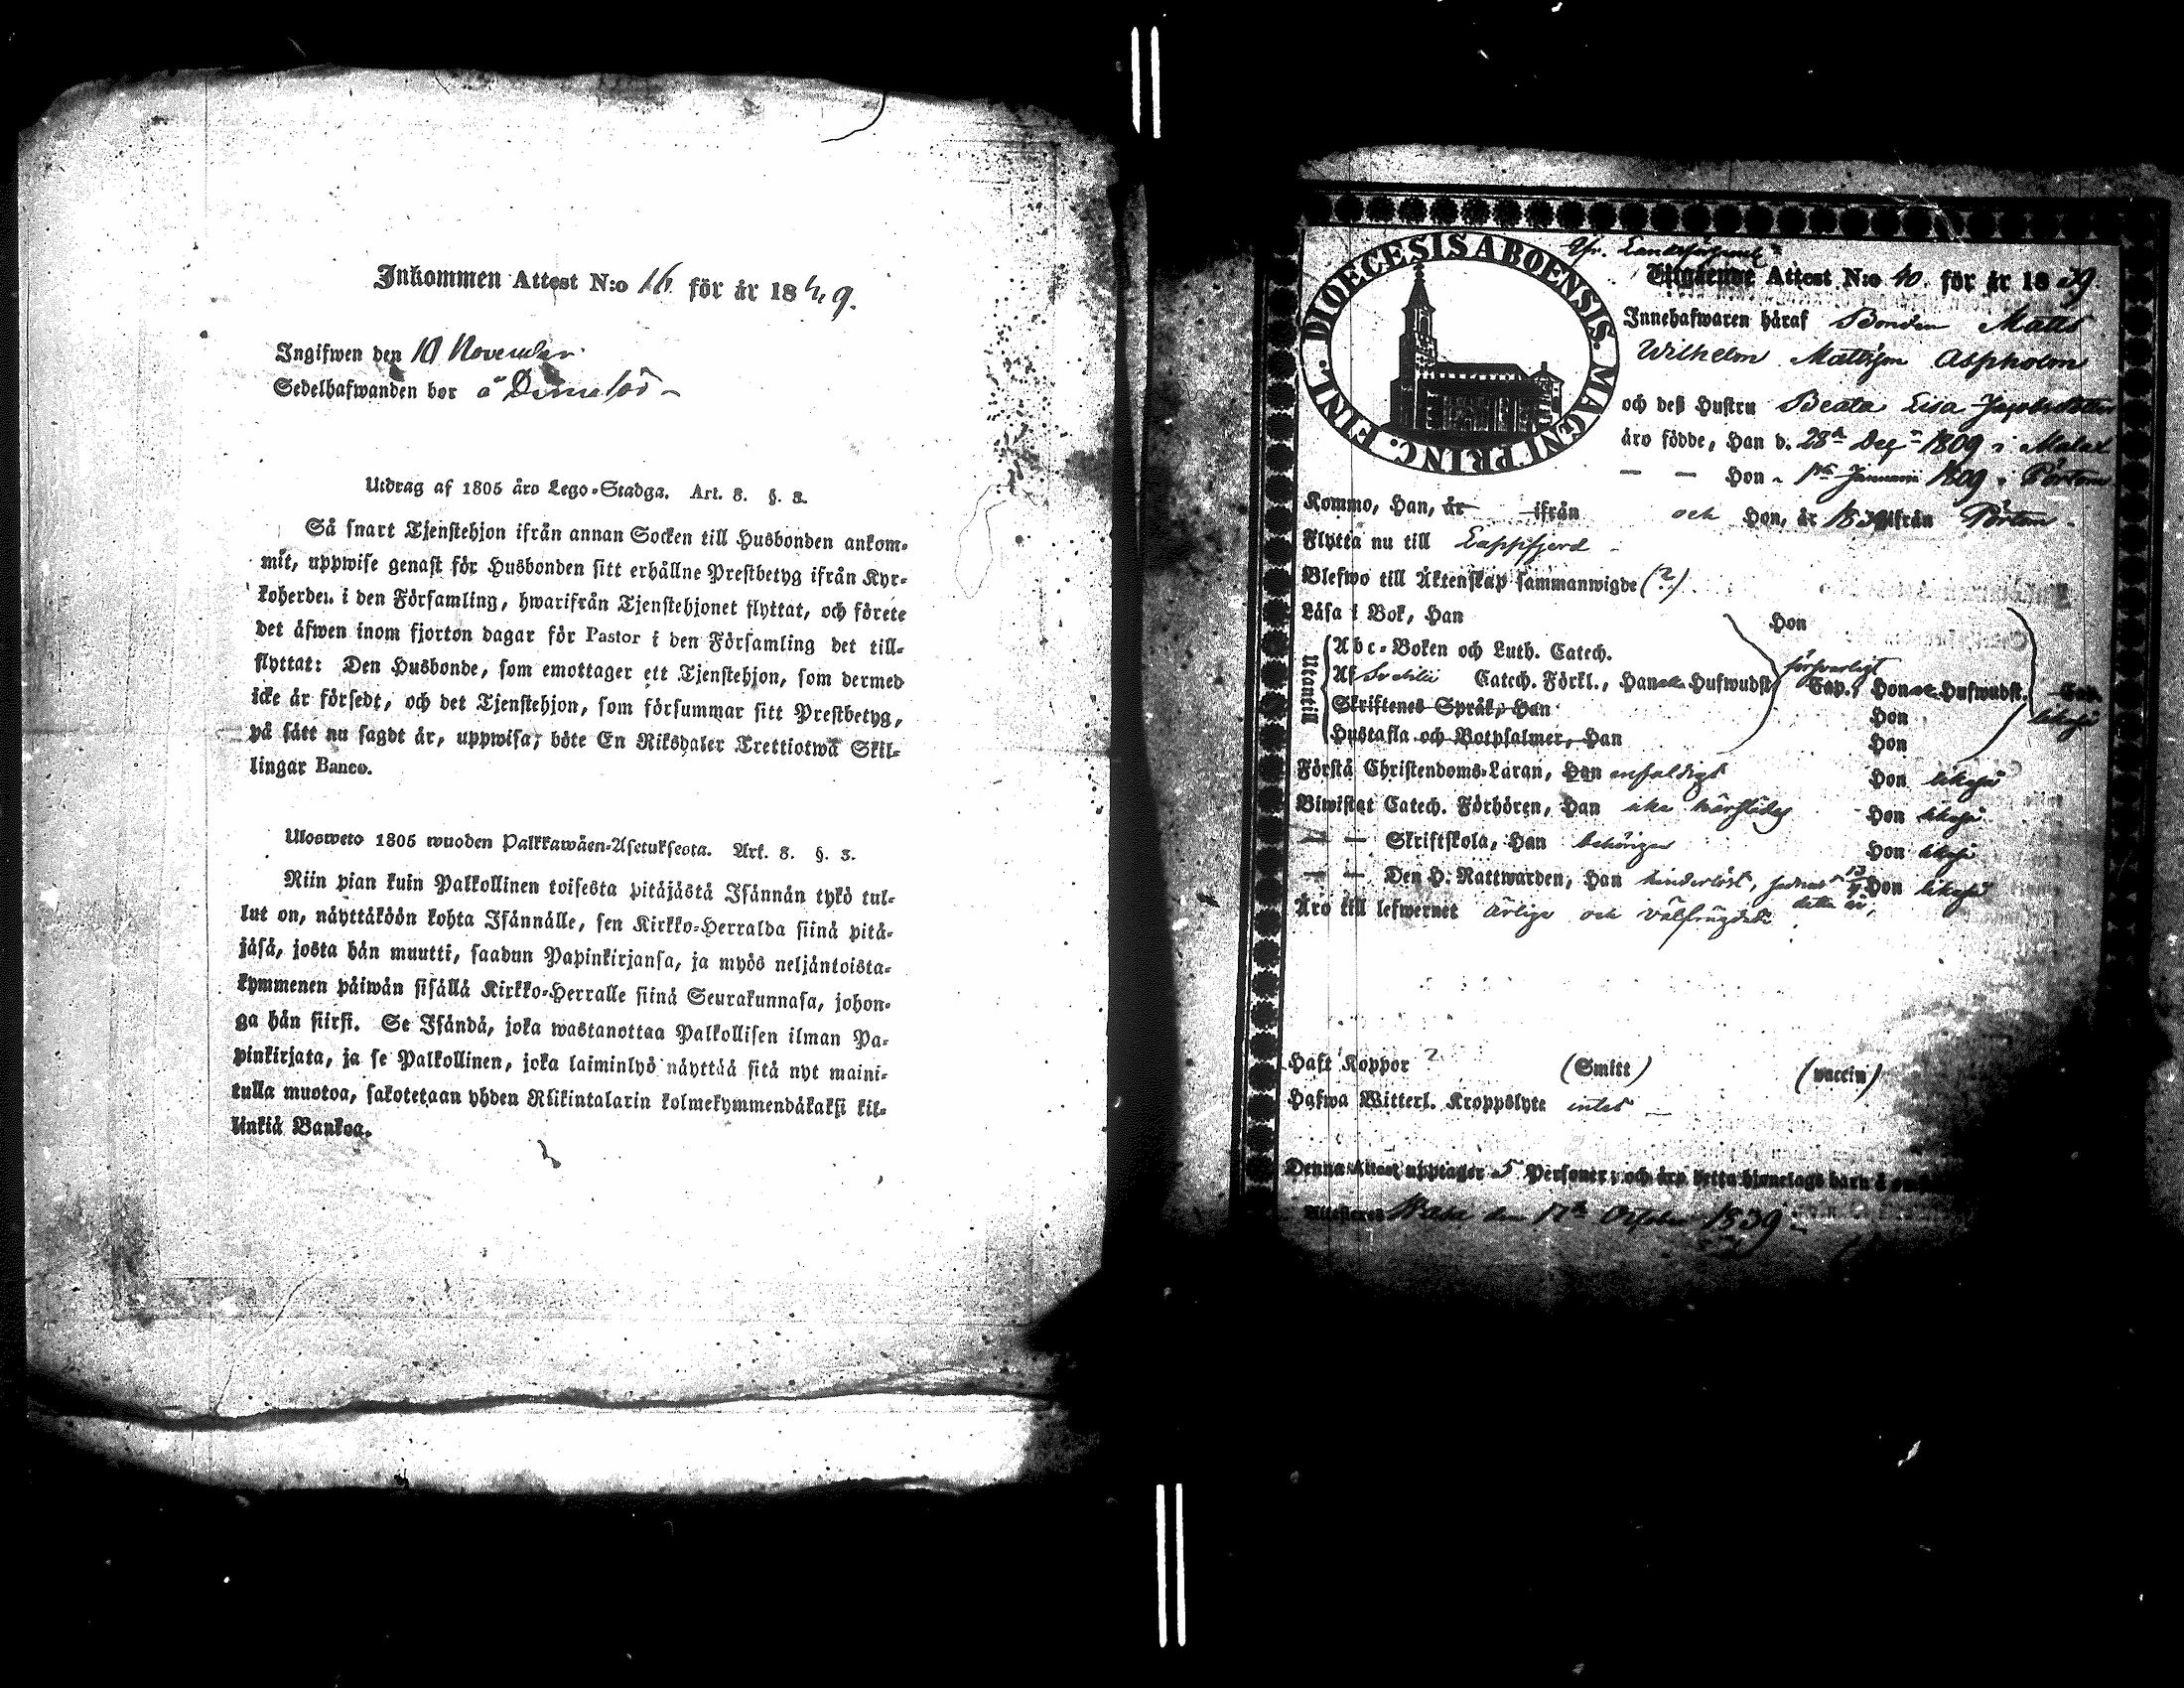 Inkommen Attest N:o 16 för år 1849.
Ingifwen den 10 November
Sedelhafwanden bor å
Utdrag af 1805 års Lego-Stadga. Art. 8. §. 3.
Så snart Tjenstehjon ifrån annan Socken till Husbonden ankom-
mit, uppwise genast för Husbonden sitt erhållne Prestbetyg ifrån Kyr-
koherden i den Församling, hwarifrån Tjenstehjonet flyttat, och förete
det äfwen inom fjorton dagar för Pastor i den Församling det till-
flyttat: Den Husbonde, som emottager ett Tjenstehjon, som dermed
icke är försedt, och det Tjenstehjon, som försummar sitt Prestbetyg,
på sätt nu sagdt är, uppwisa, böte En Riksdaler Trettiotwå Skil-
lingar Banco.
Ulosweto 1805 wuoden Palkkawäen-Asetuksesta. Art. 8. §. 3.
Niin pian kuin Palkollinen toisesta pitäjästä Isännän tykö tul-
lut on, näyttäköön kohta Isännälle, sen Kirkko-Herralda siinä pitä-
jäsä, josta hän muutti, saadun Papinkirjansa, ja myös neljäntoista-
kymmenen päiwän sisällä Kirkko-Herralle siinä Seurakunnasa, johon-
ga hän siirsi. Se Isändä, joka wastanottaa Palkollisen ilman Pa-
pinkirjata, ja se Palkollinen, joka laiminlyö näyttää sitä nyt maini-
tulla muotoa, sakotetaan yhden Riikintalarin kolmekymmendäkaksi kil-
linkiä Bankoa.
DIOECESIS ABOENSIS. MAGNI PRINC. FINL.
Utgående Attest N:o 40. för år 1839
Innehafwaren häraf Bonden Matts
Wilhelm Mattsson Aspholm
och deß Hustru Beata Lisa Jacobsdotter
äro födde, Han d. 28de 1809 i Malax
— — Hon 1sta Januarii 1809 i Pörtom
Komne, Han, år ifrån och Hon, år ifrån Pörtom.
Flytta nu till Lappfjerd
Blefwo till Äktenskap sammanwigde (?)
Läsa i Bok, Han Hon
Utantill
Abc-Boken och Luth. Catech.
Af Svebilii Catech. Förkl., Han alla Hufwudst. försvarligt Cap., Hon alla Hufwudst. Cap.
Skriftenes Språk, Han Hon likaså
Hustafla och Botpsalmer, Han Hon
Förstå Christendoms-Läran, Han enfaldigt Hon likaså
Biwistat Catech. Förhören, Han icke härstädes Hon likaså
— — Skriftskola, Han behörigen Hon likaså
— — Den H. Nattwarden, Han hinderlöst, sednast Hon likaså
detta år,
Äro till lefwernet ärlige och välfrägdade
Haft Koppor ? (Smitt) (vaccin)
Hafwa Witterl. Kroppslyte intet
Denna Attest upptager 5 Personer; och äro detta hjonelags barn å
Attesteras Wasa den 17de October 1839